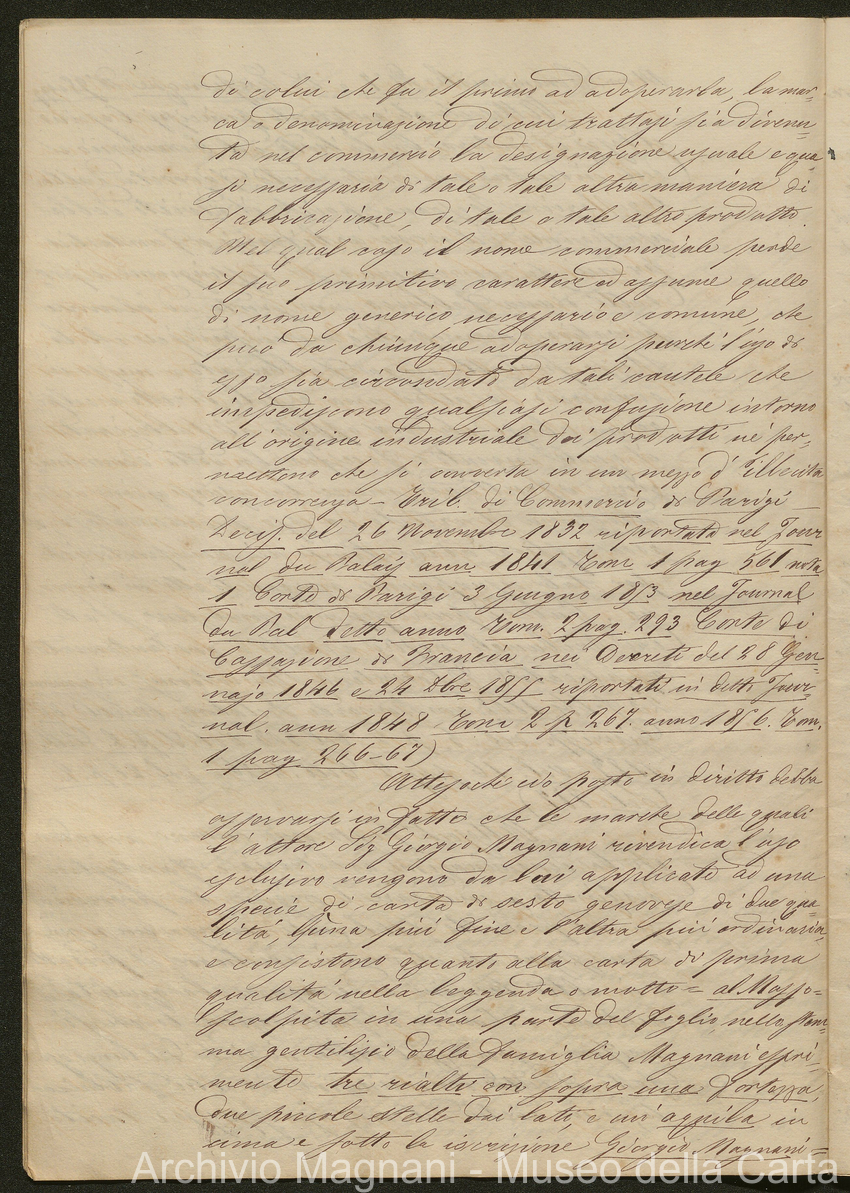 di colui che fu il primo ad adoperarla, la mar-
ca o denominazione di cui trattasi sia divenu-
ta nel commercio la designazione usuale e qua-
si necessaria di tale o tale altra maniera di
fabbricazione, di tale o tale altro prodotto.
Nel qual caso il nome commerciale perde
il suo primitivo carattere ed assume quello
di nome generico necessario e comune, che
può da chiunque adoperarsi purché l'uso di
esso sia circondato da tali cautele che
impediscono qualsiasi confusione intorno
all'origine industriale dei prodotti né per-
mettono che si converta in un mezzo d'illecita
concorrenza - Trib. di Commercio di Parigi
Decis. del 26 Novembre 1832 riportata nel Jour
nal du Palais ann 1841 Tom 1 pag 561 nota
1 Corte di Parigi 3 Giugno 1853 nel Journal
du Pal detto anno Tom. 2 pag. 293 Corte di
Cassazione di Francia nei Decreti del 28 Gen-
najo 1846 e 24 Dbre 1855 riportati in detto Jour-
nal. ann 1848 Tom 2 p 267. anno 1856. Tom.
1 pag 266-67)
Attesoché ciò posto in diritto debba
osservarsi in fatto che le marche delle quali
l'attore Sig Giorgio Magnani rivendica l'uso
esclusivo vengono da lui applicate ad una
specie di carta di sesto genovese di due qua-
lità, l'una più fine e l'altra più ordinaria,
e consistono quanto alla carta di prima
qualità nella leggenda o motto = al Masso =
scolpita in una parte del foglio nello stem-
ma gentilizio della famiglia Magnani espri-
mente tre rialti con sopra una fortezza,
due piccole stelle dai lati, e un'aquila in
cima e sotto la iscrizione Giorgio Magnani =
Archivio Magnani - Museo della Carta